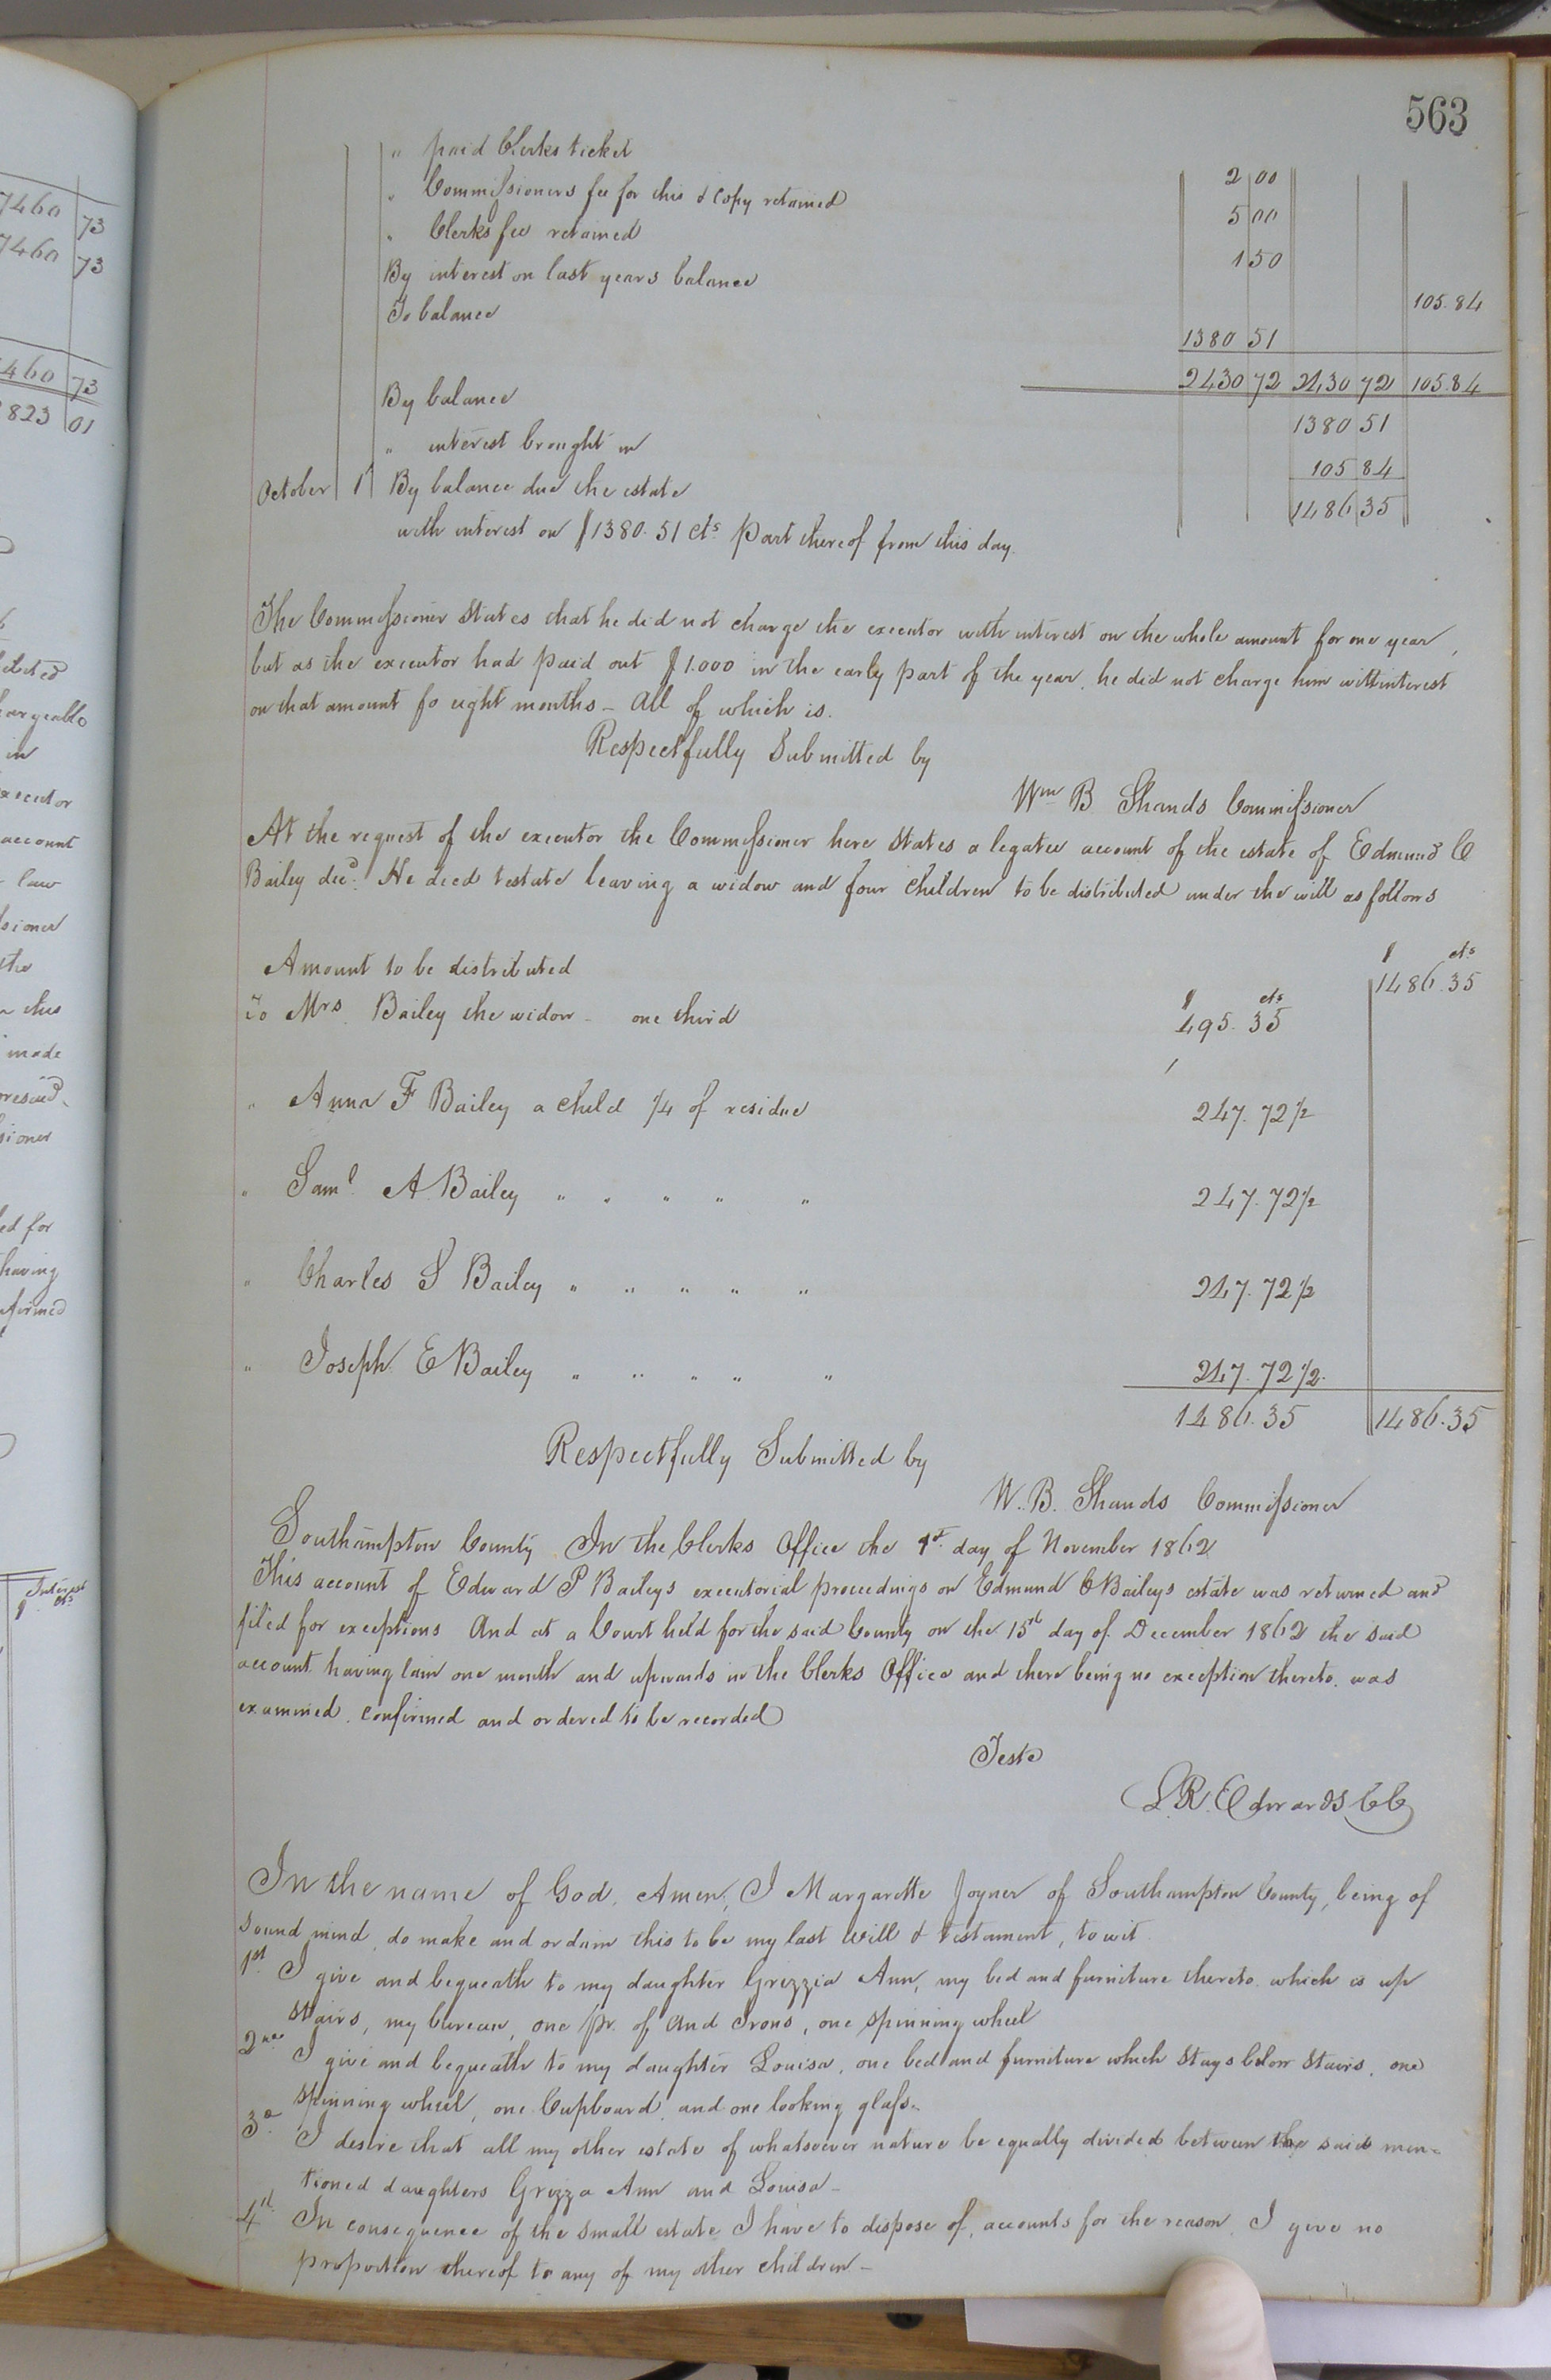 563
" paid Clerks ticket 2 00
" Commissioners fee for this & copy retained 5 00
" Clerks fee retained 1 50
By interest on last years balance 105.84
To balance 1380 51
2430 72 2430 72 105.84
By balance 1380 51
" interest brought in 105 84
October 1 By balance due the estate 1486 35
with interest on $1380.51 cts part thereof from this day.
The Commissioner States that he did not charge the executor with interest on the whole amount for one year,
but as the executor had paid out $1.000 in the early part of the year, he did not charge him with interest
on that amount fo eight months – All of which is.
Respectfully Submitted by
Wm B Shands Commissioner
At the request of the executor the Commissioner here States a legatee account of the estate of Edmund C
Bailey decd. He died testate leaving a widow and four children to be distributed under the will as follows
$ cts
Amount to be distributed 1486.35
$ cts
To Mrs. Bailey the widow – one third 495.35
" Anna F Bailey a child 1/4 of residue 247.72 1/2
" Saml. A. Bailey " " " " " 247.72 1/2
" Charles S Bailey " " " " " 247.72 1/2
" Joseph E Bailey " " " " " 247.72 1/2
1486.35 1486.35
Respectfully Submitted by
W. B. Shands Commissioner
Southampton County In the Clerks Office the 1st day of November 1862
This account of Edward P Baileys executorial proceedings on Edmund C Baileys estate was returned and
filed for exceptions And at a Court held for the said County on the 15th day of December 1862 the said
account having lain one month and upwards in the Clerks Office and there being no exception thereto. was
examined. confirmed and ordered to be recorded
Teste
L. R. Edwards CC
In the name of God. Amen, I Margarette Joyner of Southampton County, being of
Sound mind, do make and ordain this to be my last Will & testament, to wit.
1st. I give and bequeath to my daughter Grizzia Ann, my bed and furniture thereto. which is up
Stairs, my bureau, one pr. of And Irons, one spinning wheel
2nd I give and bequeath to my daughter Louisa, one bed and furniture which Stays below Stairs, one
spinning wheel, one Cupboard, and one looking glass.
3d. I desire that all my other estate of whatsoever nature be equally divided between the said men=
tioned daughters Grizza Ann and Louisa –
4th In consequence of the Small estate I have to dispose of, accounts for the reason I give no
proportion thereof to any of my other children –
7460 73
7460 73
460 73
823 01
in
executor
account
law
the
this
made
ed for
having
Interest
$ cts